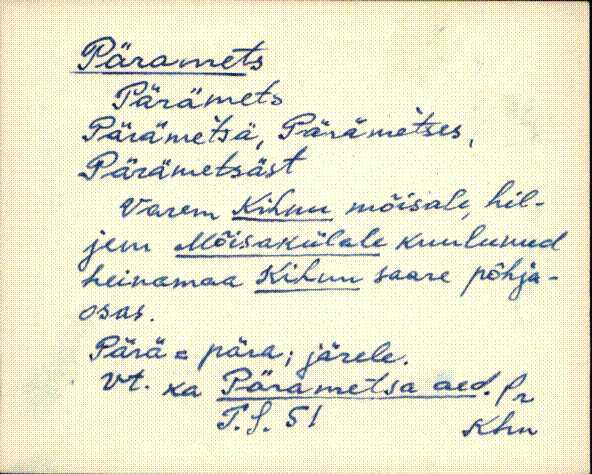 Päramets
Pärämets
Pärämetsä, Pärämetses,
Pärämetsäst
Varem Kihnu mõisale, hil-
jem Mõisakülale kuulunud
heinamaa Kihnu saare põhja-
osas.
Pärä = pära; järele.
Vt. ka Pärametsa aed. Pr
T.S. 51 Khn